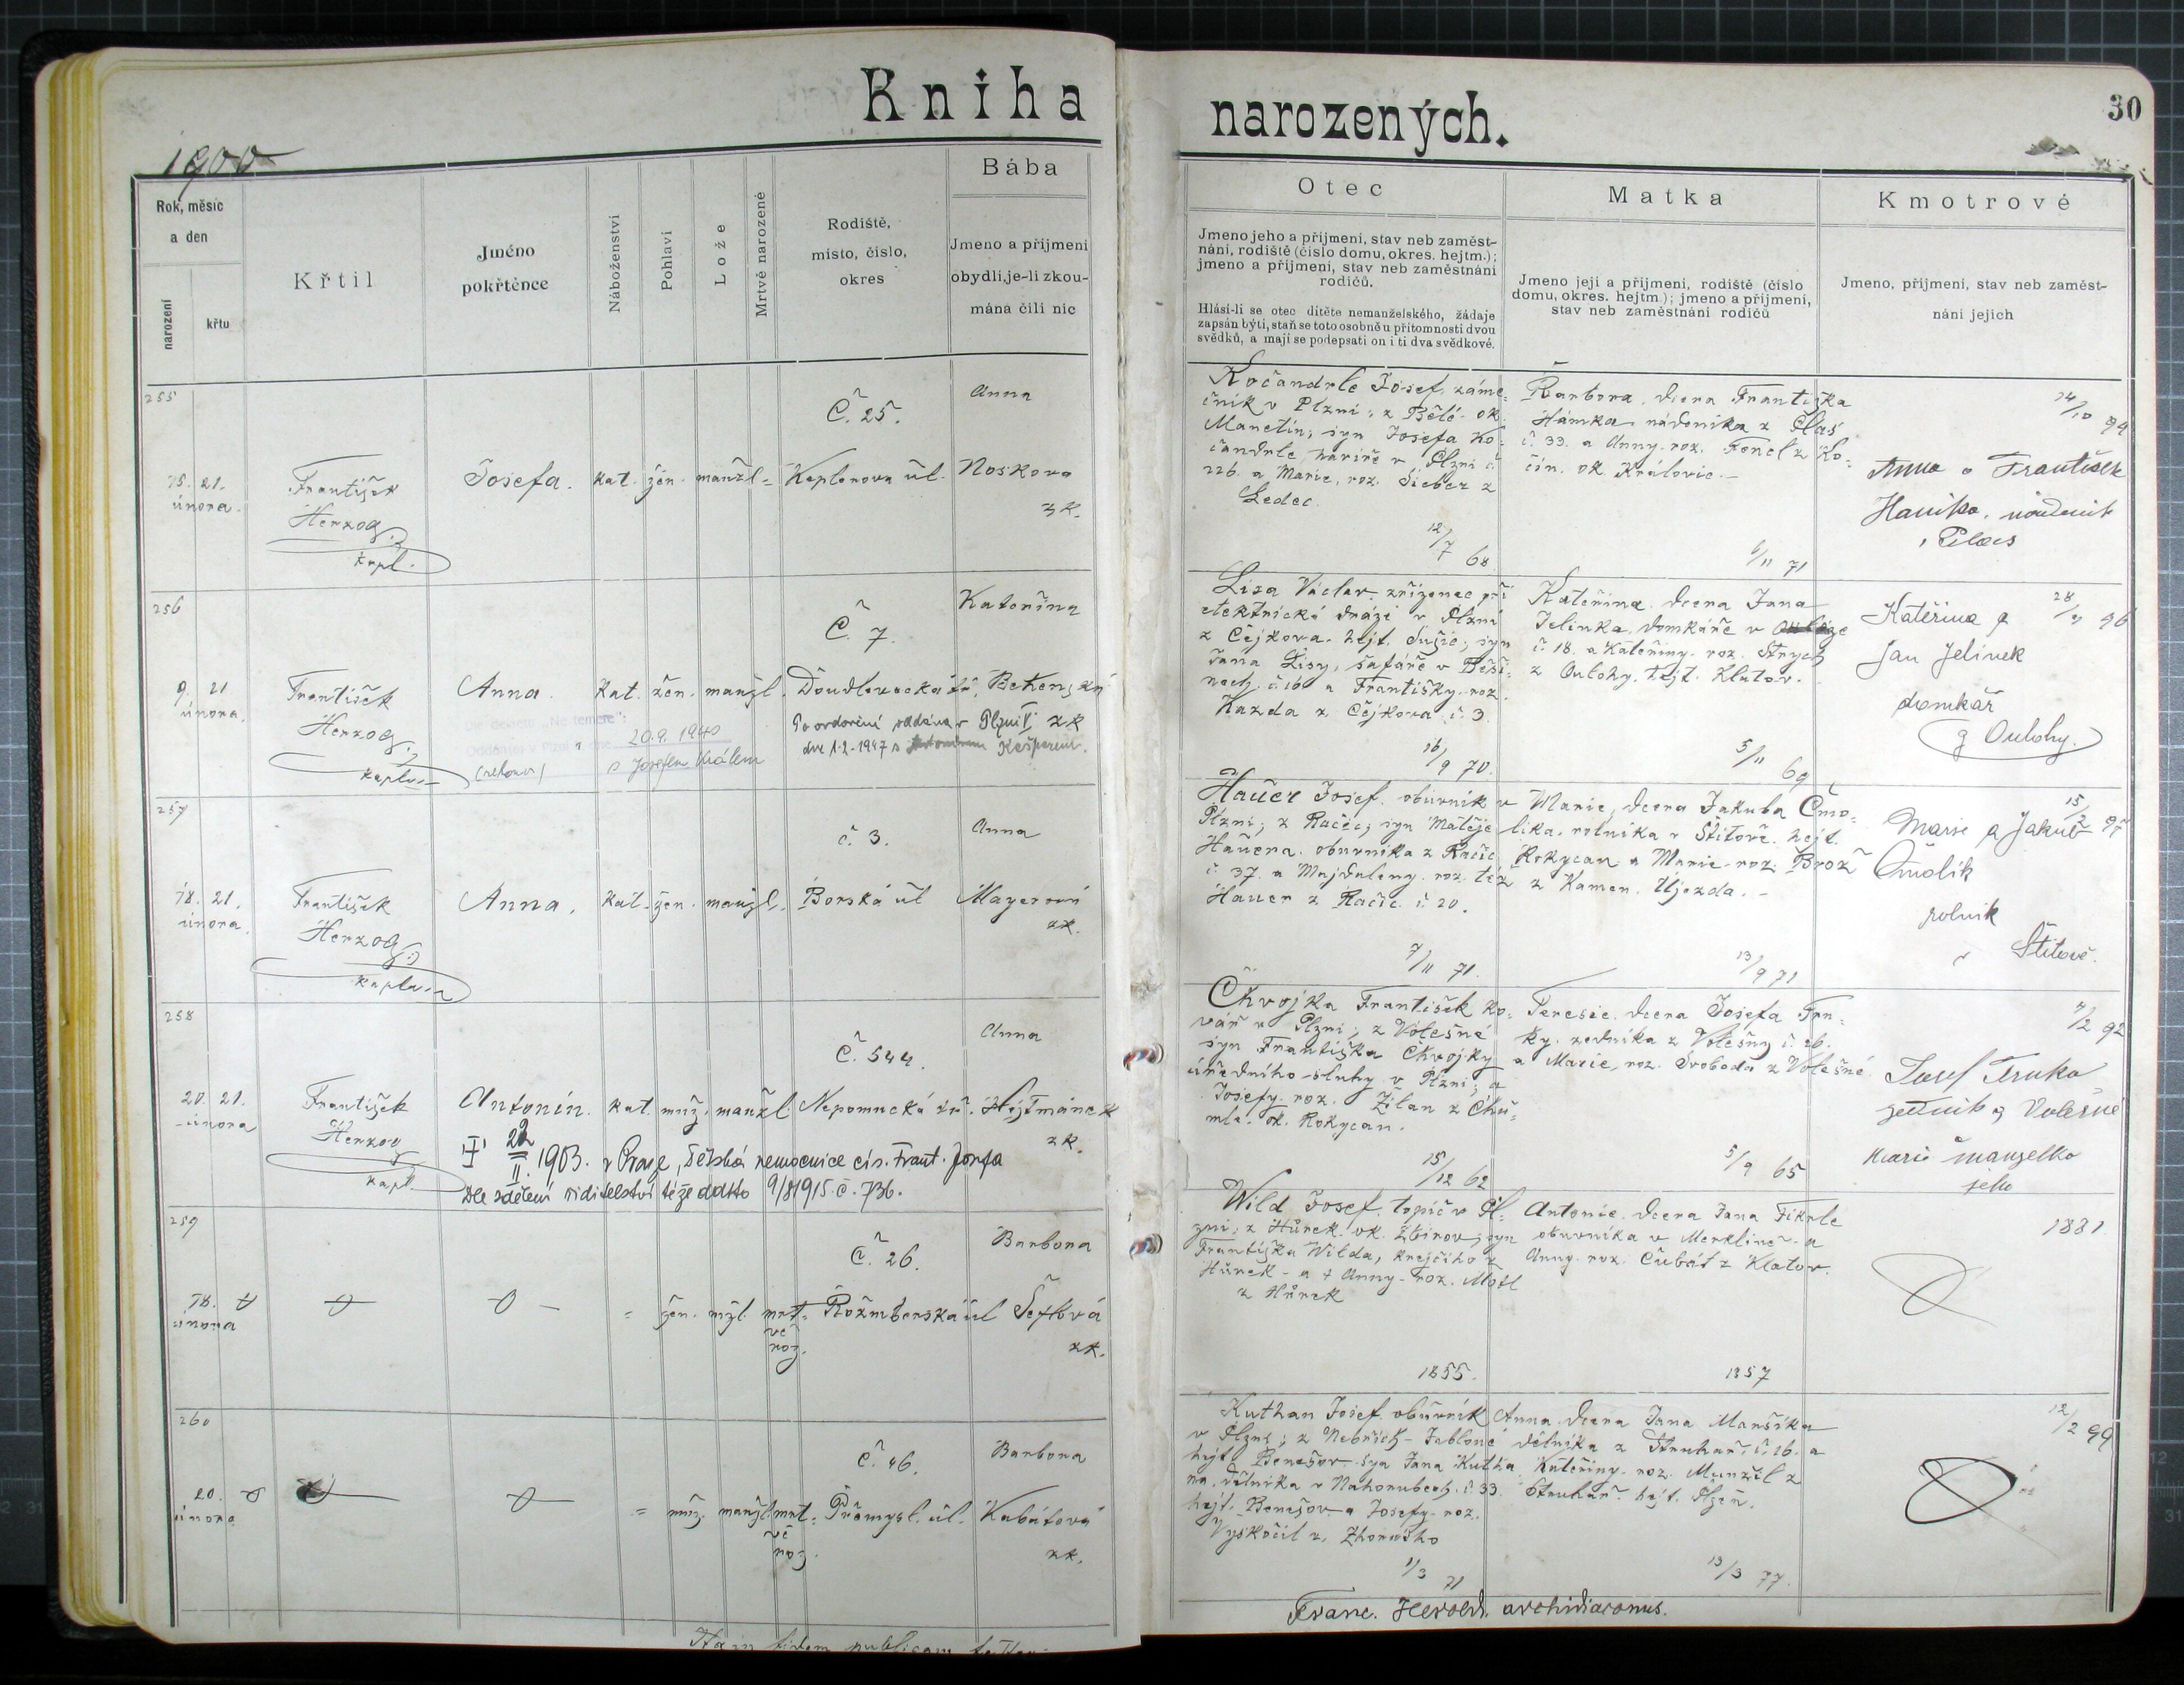 Kniha
narozených.
30
1900
Rok, měsíc
a den
narození
křtu
Křtil
Jméno
pokřtěnce
Náboženství
Pohlaví
Lože
Mrtvě narozené
Rodiště,
místo, číslo,
okres
Bába
Jmeno a příjmení
obydlí, je-li zkou-
mána čili nic
Otec
Jmeno jeho a příjmení, stav neb zaměst-
nání, rodiště (číslo domu, okres. hejtm.);
jmeno a příjmení, stav neb zaměstnání
rodičů.
Hlásí-li se otec dítěte nemanželského, žádaje
zapsán býti, staň se toto osobně u přítomnosti dvou
svědků, a mají se podepsati on i ti dva svědkové.
Matka
Jmeno její a příjmení, rodiště (číslo
domu, okres. hejtm.); jmeno a příjmení,
stav neb zaměstnání rodičů
Kmotrové
Jmeno, příjmení, stav neb zaměst-
nání jejich
255
15. 21.
února.
František
Herzog
kapl.
Josefa.
kat. žen. manžl.
Č. 25.
Keplerova ul.
Anna
Noskova
zk.
Kočandrle Josef, záme-
čník v Plzni; z Bělé ok.
Manetín, syn Josefa Ko-
čandrle v Plzni č.
226. a Marie, roz. Sieber z
Ledec.
12/7 68
Barbora, dcera Františka
Hámka nádeníka z Plas
č. 33. a Anny roz. Fencl z Ko-
čín. ok. Kralovic.
6/11 71
14/10 94
Anna a František
Hanika, nádeník
z Plas
256
9. 21
února.
František
Herzog
kaplan
Anna.
kat. žen. manžl.
Dle dekretu „Ne temere":
20.9. 1940
s Josefem Králem
Č. 7.
Doudlevecká tř.
Po ovdovění oddána v Plzni
dne 1.2.1947 s Kašparem.
Kateřina
zk
Lisa Václav zřízenec při
elektrické dráze v Plzni
z Čejkova. hejt. Sušic; syn
Jana Lisy, šafáře v Běši-
nech. č. 16 a Františky roz.
Kazda z Čejkova č. 3
16/9 70.
Kateřina. dcera Jana
Jelínka, domkáře v
č. 18. a Kateřiny. roz. Strych
z Oulohy. hejt. Klatov.
5/11 69
Kateřina a
Jan Jelínek
domkář
z Oulohy.
257
18. 21.
února.
František
Herzog
kaplan
Anna.
kat. žen. manžl.
č. 3.
Borská ul
Anna
Mayerová
zk.
Hauer Josef. obuvník v
Plzni; z Račic; syn Matěje
Hauera. obuvníka z Račic
č. 37. a Majdaleny. roz. též
Hauer z Račic č. 20.
7/11 71.
Marie, dcera Jakuba Čmo-
líka. rolníka v Štítově. hejt.
Rokycan a Marie roz. Brož
z Kamen. Újezda.
13/9 71
Marie a Jakub
Čmolík
rolník
v Štítově.
258
20. 21.
února
František
Herzog
kapl.
Antonín.
kat. muž. manžl.
1903. v Praze, Dětská nemocnice cís. Frant. Josefa
Dle sdělení ředitelství téže ddto 9/8 1915 č. 736.
Č. 544.
Nepomucká tř.
Anna
Hejtmánek
zk.
Chvojka František ko-
vář v Plzni; z Volešné
syn Františka Chvojky
úředního sluhy v Plzni; a
Josefy. roz. Žilan z Chu-
mle. ok. Rokycan.
15/12 62
Teresie. dcera Josefa Trn-
ky. zedníka z Volešny č. 26.
a Marie, roz. Svoboda z Volešné
5/9 65
4/2 92
Josef Trnka
zedník z Volešné
Marie manželka
jeho
259
18.
února
žen. mžl. mrt-
vě
roz.
Č. 26.
Rožmberská ul
Barbora
Šeflová
zk.
Wild Josef. topič v Pl-
zni; z Hůrek. ok. Zbirov; syn
Františka Wilda, krejčího z
Hůrek a † Anny roz. Motl
z Hůrek
1855.
Antonie. dcera Jana Fikrle
obuvníka v Merklíně a
Anny roz. Čubát z Klatov.
1857
1881
260
20.
února
muž. manžl. mrt-
vě
roz.
Č. 46.
Přemysl. ul.
Barbora
Kabátová
zk.
Kuthan Josef. obuvník
v Plzni; z Nebřich-Jablonné
hejt. Benešov syn Jana Kutha
na. dělníka v Nahorubech. č. 33.
hejt. Benešov a Josefy roz.
Vyskočil z
1/3 71
Anna dcera Jana Maršíka
dělníka z Struhař. č. 16. a
Kateřiny. roz. Munzil z
Struhař. hejt. Plzeň.
13/3 77.
12/2 99
Franc. Herold. archidiaconus.